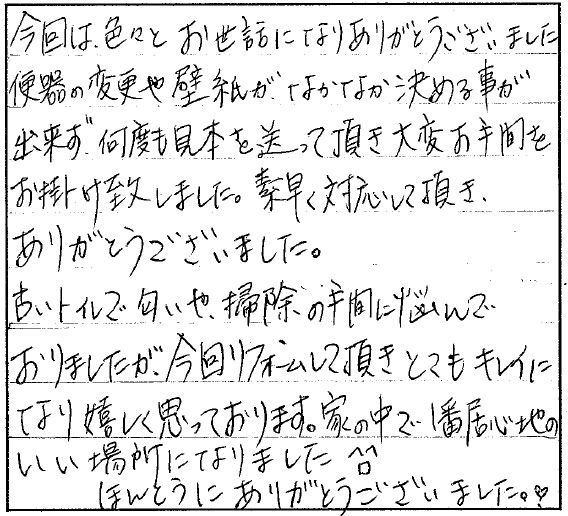 今回は、色々と お世話になりありがとうございました
便器の変更や壁紙が、なかなか決める事が
出来ず、何度も見本を送って頂き大変お手間を
お掛け致しました。素早く対応して頂き、
ありがとうございました。
古いトイレで匂いや、掃除の手間に悩んで
おりましたが、今回リフォームして頂きとてもキレイに
なり嬉しく思っております。家の中で1番居心地の
いい場所になりました ^^
ほんとうにありがとうございました。♡